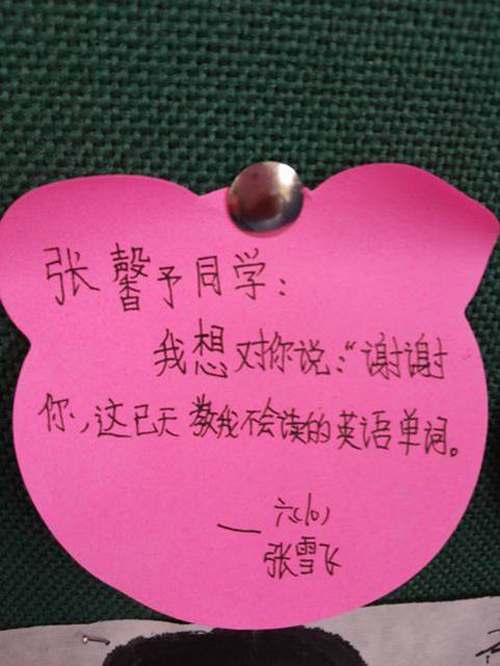 张馨予同学：
我想对你说：“谢谢
你，这已天教我不会读的英语单词。
— 六(10)
张雪飞